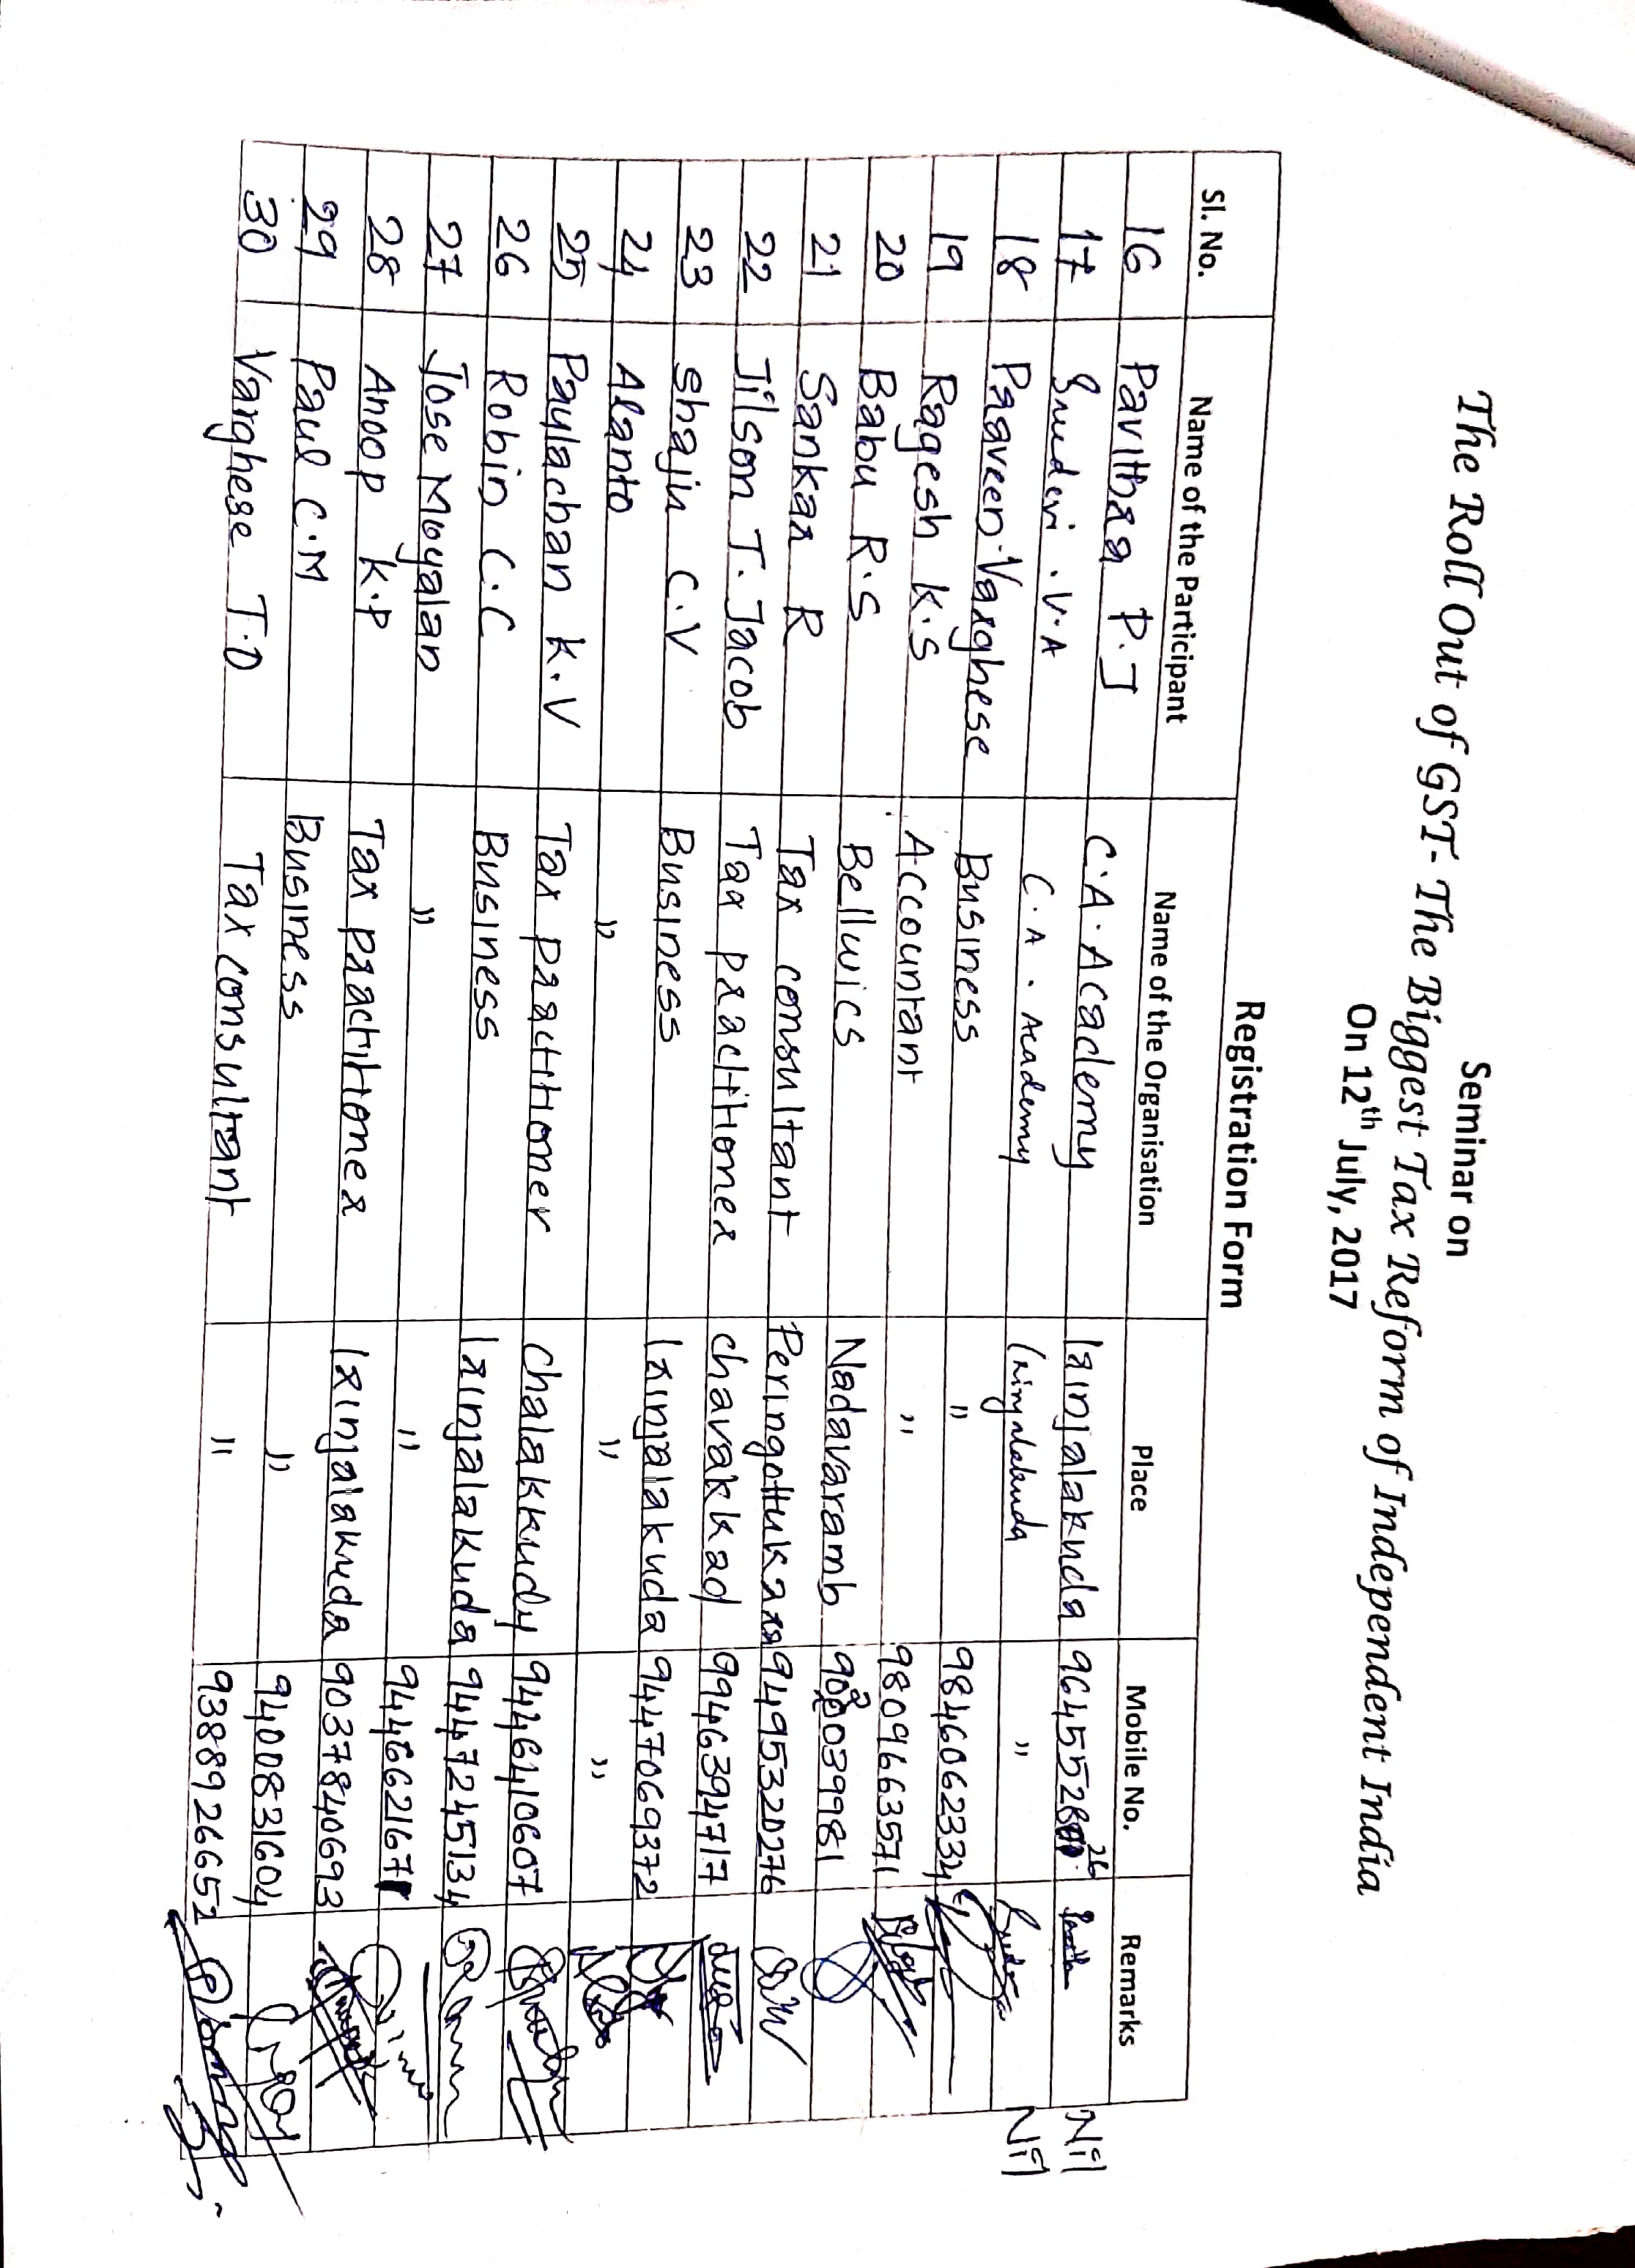 Seminar on
The Roll Out of GST- The Biggest Tax Reform of Independent India
On 12th July, 2017
Registration Form
Sl. No. Name of the Participant Name of the Organisation Place Mobile No. Remarks
16 Pavithra P.J C.A. Academy Irinjalakuda Nil
17 Sreedevi .V.A C.A. Academy Irinjalakuda " Nil
18 Praveen Varghese Business " 9846062334
19 Ragesh K.S Accountant " 9809663571
20 Babu R.S Bellwics Nadavaramb
21 Sankar R Tax consultant Peringottukara 9495320276
22 Jilson T. Jacob Tax practitioner chavakkad 9946394717
23 Shajin C.V Business Irinjalakuda 9447069372
24 Alanto " " "
25 Paulachan K.V Tax practitioner chalakkudy 9446410607
26 Robin C.C Business Irinjalakuda 9447245134
27 Jose Moyalan " "
28 Anoop K.P Tax practitioner Irinjalakuda 9037840693
29 Paul C.M Business " 9400831604
30 Varghese T.D Tax consultant " 9388926652